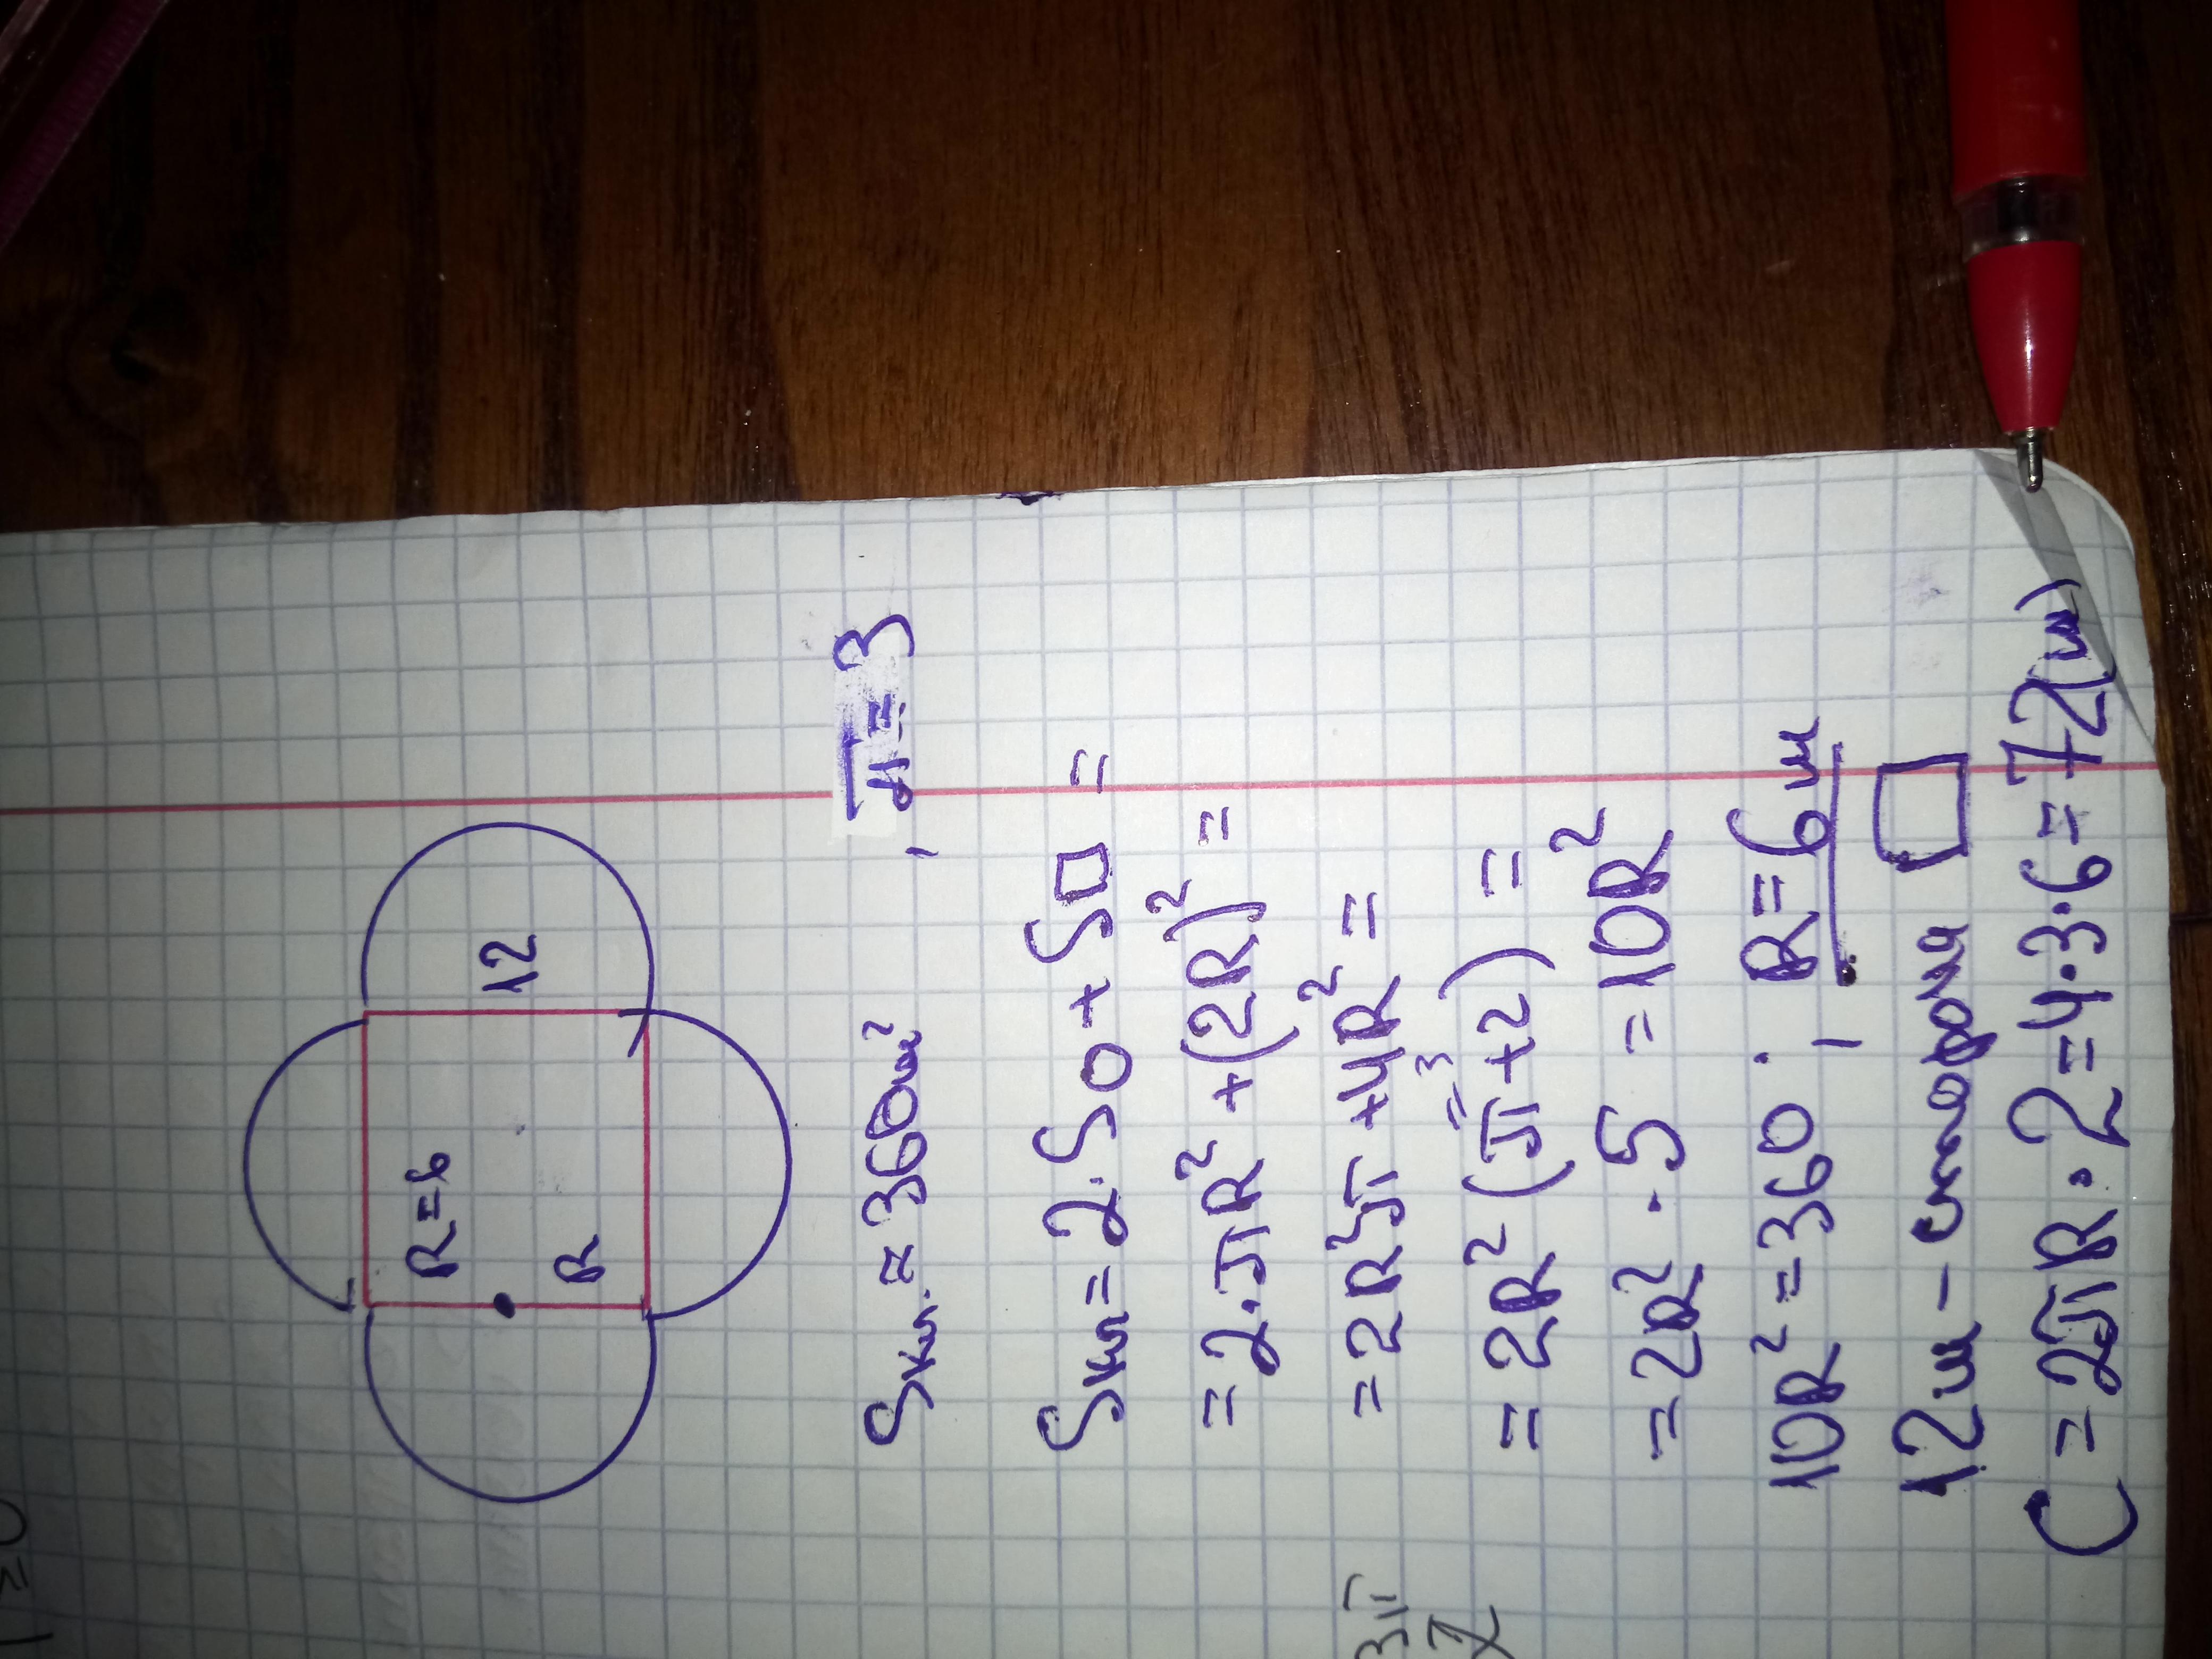 R=6
R
12
Sкл. = 360м², π=3
Sкл = 2·S○ + S□ =
= 2·πR² + (2R)² =
= 2R²π + 4R² =
= 2R² (π + 2) =
"3
= 2R² · 5 = 10R²
10R² = 360 ; R = 6м
12м – сторона □
C = 2πR·2 = 4·3·6 = 72(м)
3π
2